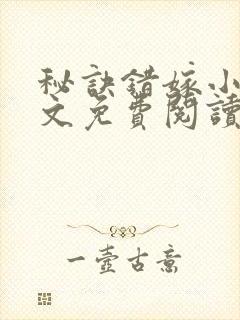 秘訣錯嫁小
文免費閱讀
一壺古意